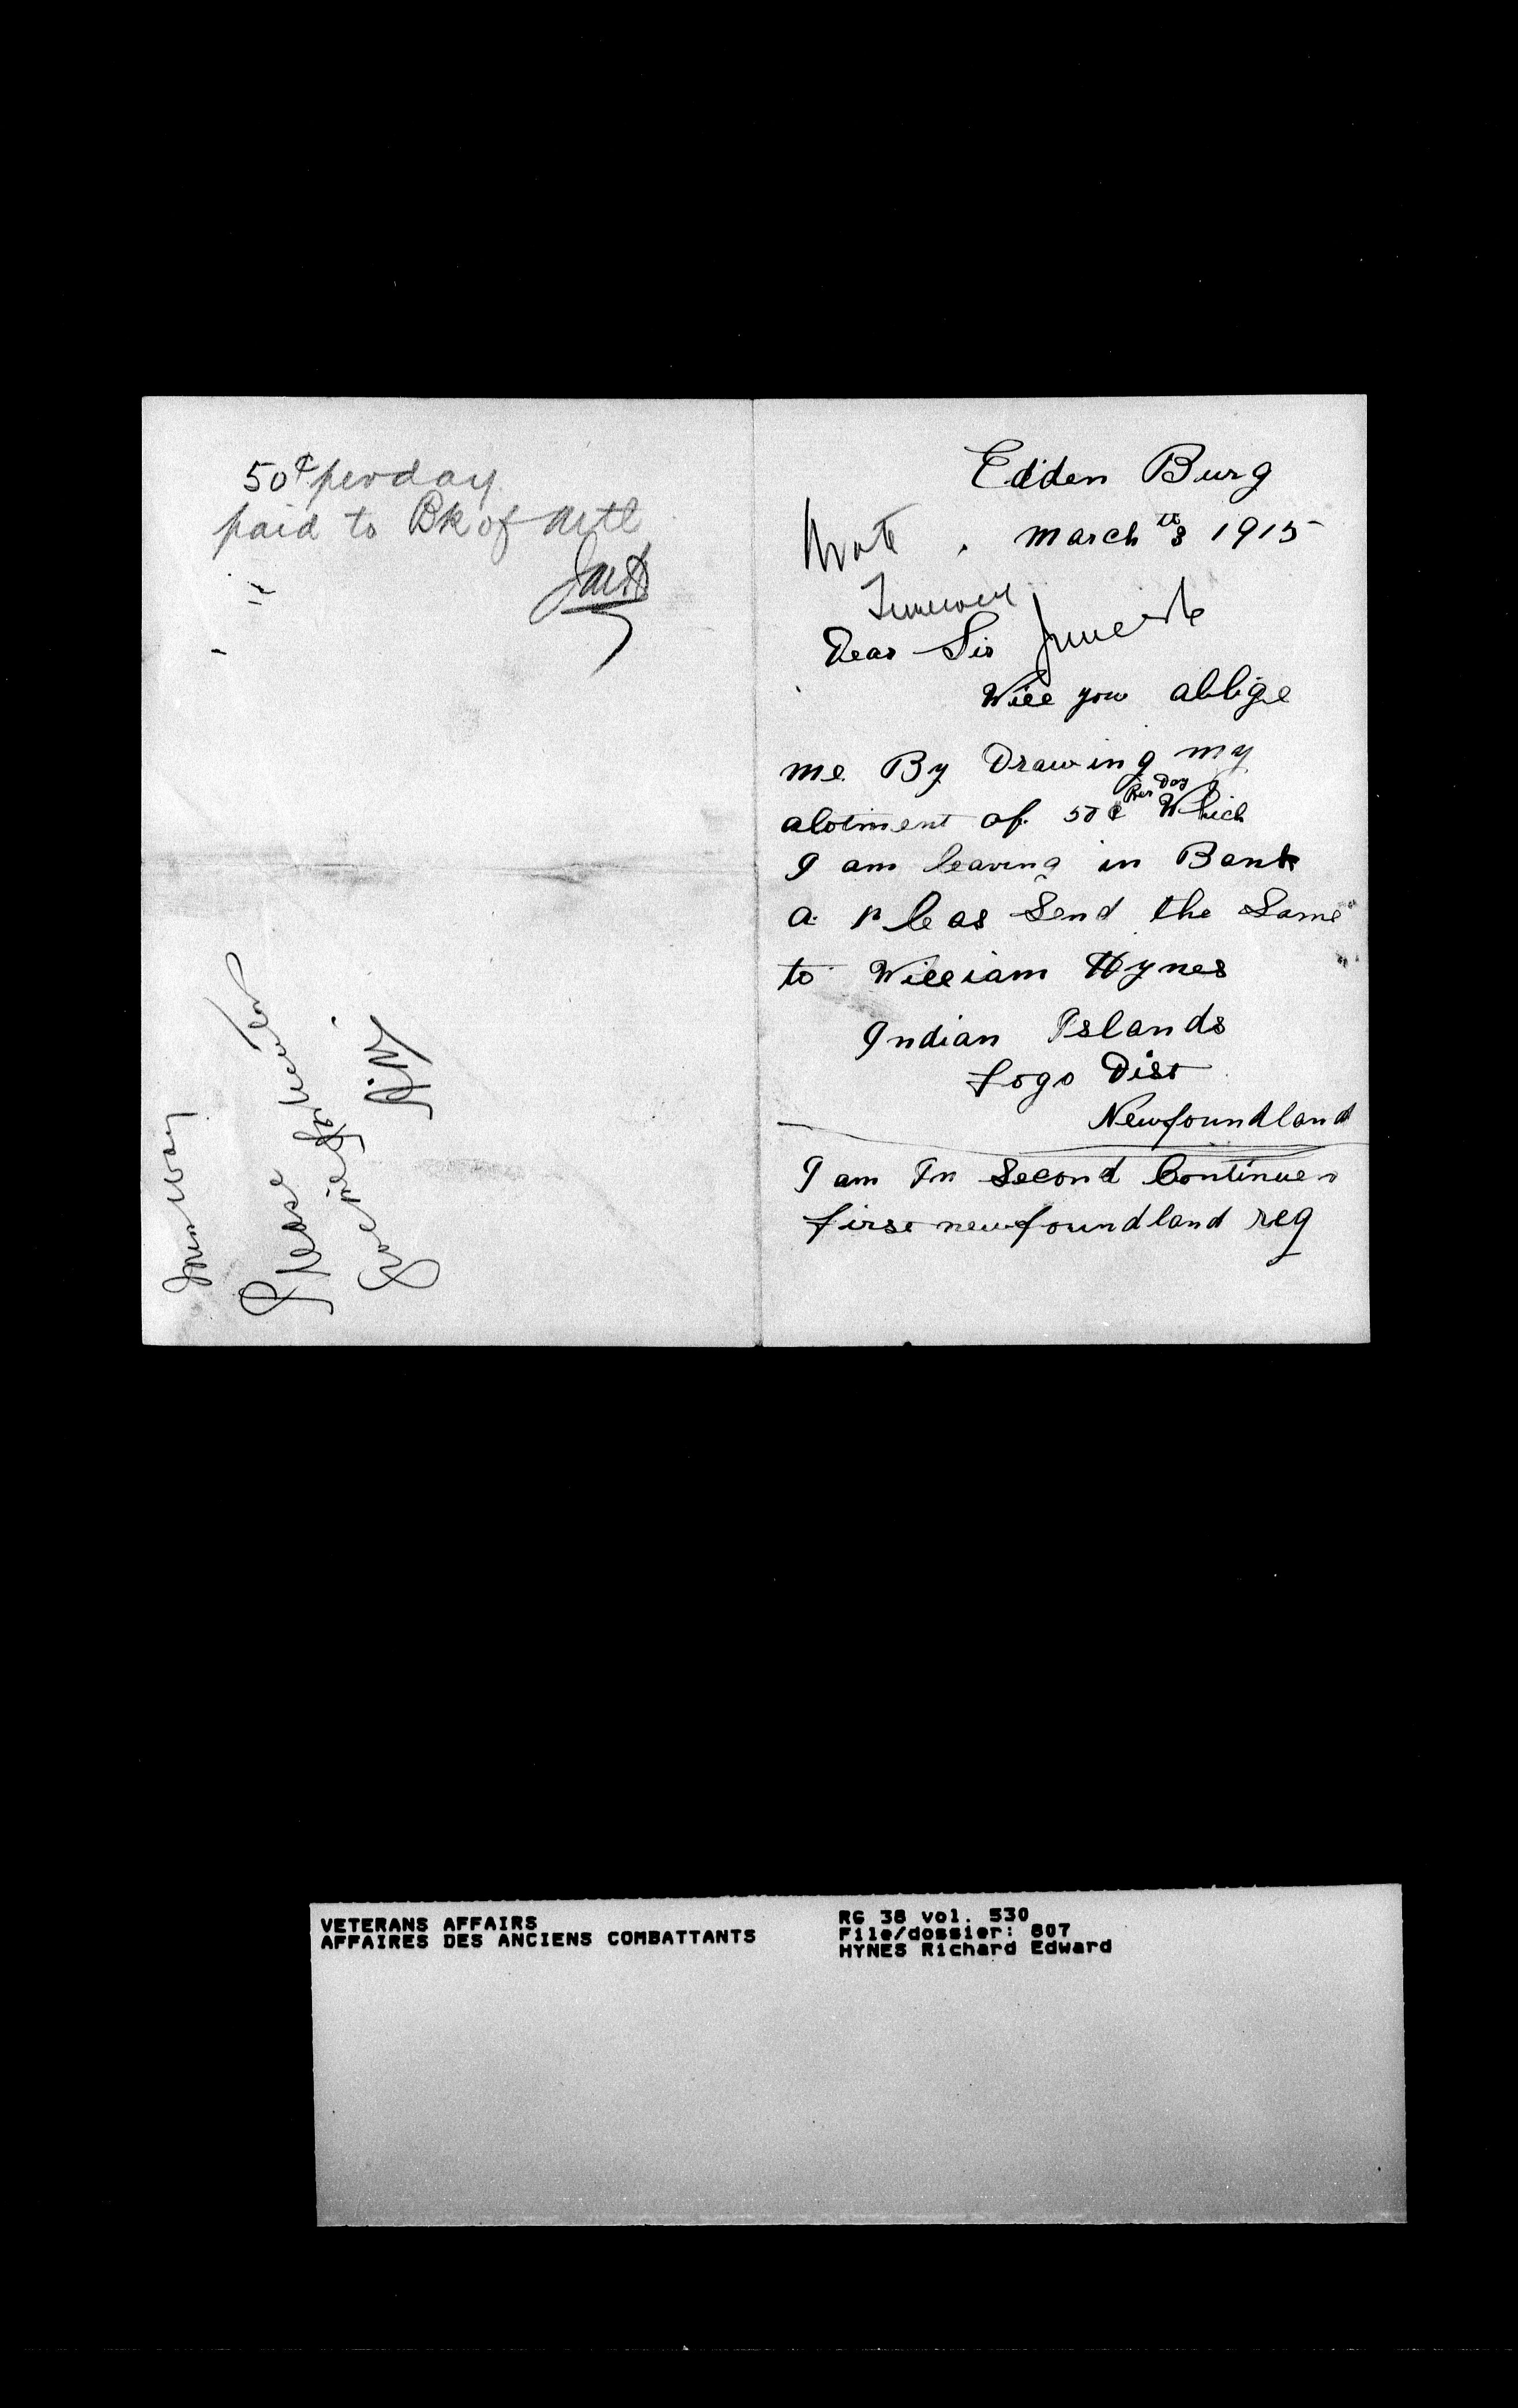 50¢ per day
paid to Bk of Mtl
Please
give me
Edden Burg
Wrote
march 8th 1915
Dear Sir
Will you ablige
me By Drawing my
alotment of 50¢ Per Day Which
I am leaving in Bank
a pleas Send the Same
to William Hynes
Indian Islands
fogo Dist
Newfoundland
I am In Second Continuen
first newfoundland reg
VETERANS AFFAIRS
AFFAIRES DES ANCIENS COMBATTANTS
RG 38 vol. 530
File/dossier: 807
HYNES Richard Edward